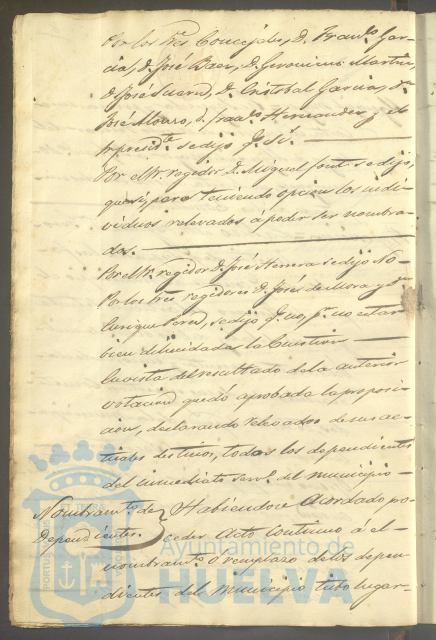 Por los Sres Concejales, D. Franco Gar-
cia, D. José Baez, D. Geronimo Martin,
D. José Suared, D. Cristobal Garcia, Dn
José Alvaro, D. Franco Hernandez y el
Presidte se dijo q. Sí.
Por el Sr. regidor D. Miguel se dijo,
que sí, pero teniendo opcion los indi-
viduos relevados á pedir ser nombra-
dos.
Por el Sr. regidor D. José Herrera se dijo No
Por los Sres regidores D. José de Mora y Dn
Enrique Pered, se dijo q. no, pr. no estar
bien dilucidada la Cuestion
En vista del resultado de la anterior
votacion quedó aprobada la proposi-
cion, declarando relevados de sus ac-
tuales destinos, todos los dependientes
del inmediato servo. del municipio
Nombramto de
Dependientes.
Habiendose Acordado pro-
ceder Acto continuo á el
nombramto o remplazo de los depen-
dientes del municipio tubo lugar
Ayuntamiento de
HUELVA